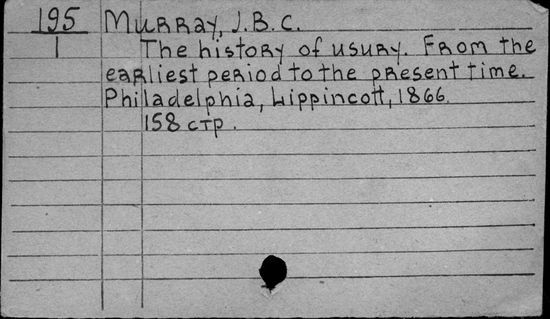 195 Murray, J.B.C.
1 The history of usury. From the
earliest period to the present time.
Philadelphia, Lippincott, 1866.
158 стр.